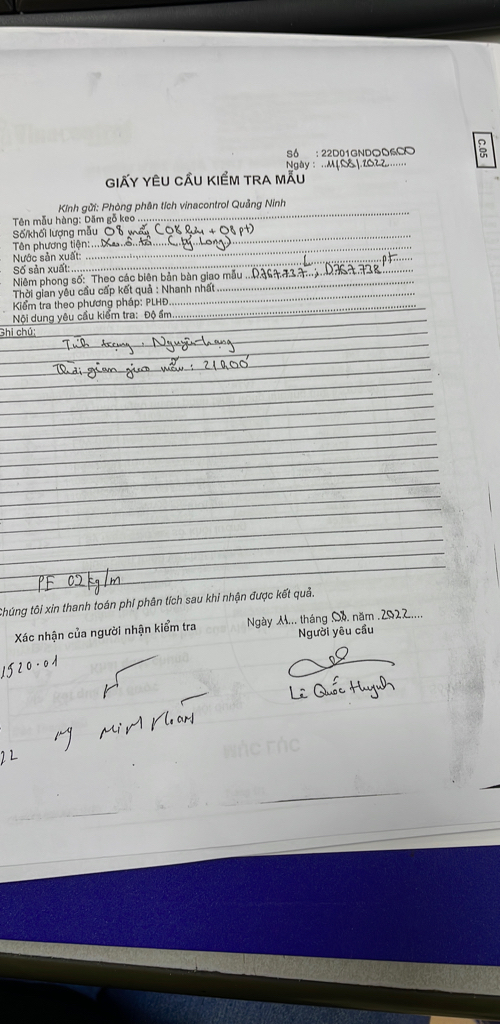 C.05
Số : 22D01GND00600
Ngày : 11/08/2022
GIẤY YÊU CẦU KIỂM TRA MẪU
Kính gửi: Phòng phân tích vinacontrol Quảng Ninh
Tên mẫu hàng: Dăm gỗ keo
Số/khối lượng mẫu 08 mẫu (08 lưu + 08 pt)
Tên phương tiện: Xe ô tô (Cty Long)
Nước sản xuất:
Số sản xuất:
Niêm phong số: Theo các biên bản bàn giao mẫu D767.737 L ; D767.738 pt
Thời gian yêu cầu cấp kết quả : Nhanh nhất
Kiểm tra theo phương pháp: PLHĐ
Nội dung yêu cầu kiểm tra: Độ ẩm
Ghi chú:
Tình trạng : Nguyên hạng
Thời gian giao mẫu : 21h00'
PE 02 kg/m
Chúng tôi xin thanh toán phí phân tích sau khi nhận được kết quả.
Xác nhận của người nhận kiểm tra
Ngày 11 tháng 08 năm 2022
Người yêu cầu
1520.01
Lê Quốc Huynh
22